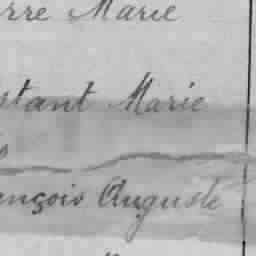 rre Marie
stant Marie
ançois Auguste